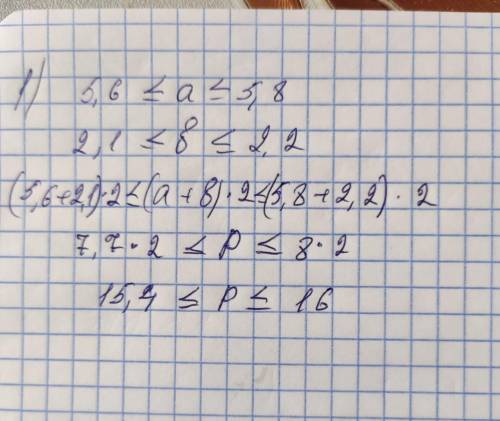 1) 5,6 ≤ a ≤ 5,8
2,1 ≤ в ≤ 2,2
(5,6+2,1)·2 ≤ (a+в)·2 ≤ (5,8+2,2)·2
7,7·2 ≤ P ≤ 8·2
15,4 ≤ P ≤ 16